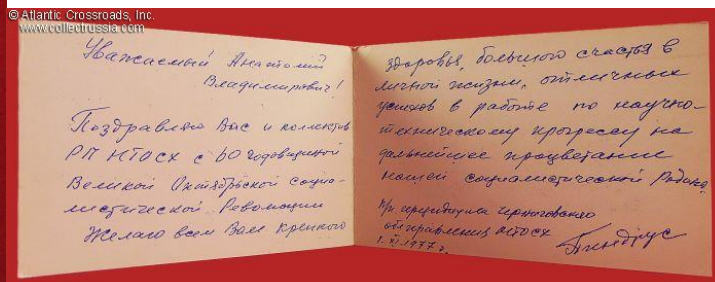 © Atlantic Crossroads, Inc.
www.collectrussia.com
Уважаемый Анатолий
Владимирович!
Поздравляю Вас и коллектив
РП НТОСХ с 60 годовщиной
Великой Октябрьской социа-
листической Революции
Желаю всем Вам крепкого
здоровья, большого счастья в
личной жизни, отличных
успехов в работе по научно-
техническому прогрессу на
дальнейшее процветание
нашей социалистической Родины.
президиума
облправления НТОСХ
1.XI.1977 г.